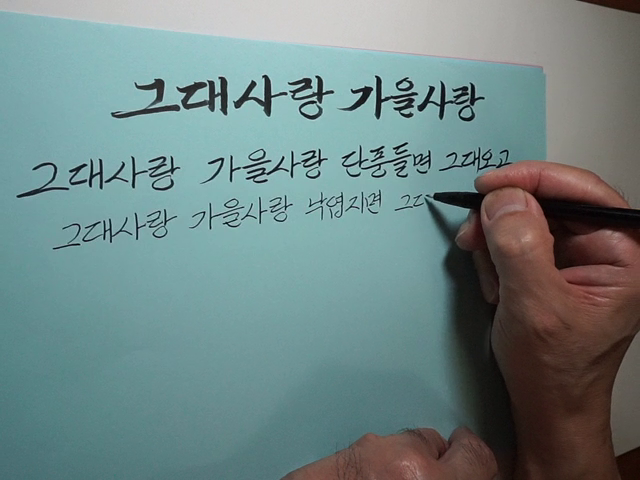 그대사랑 가을사랑
그대사랑 가을사랑 단풍들면 그대오고
그대사랑 가을사랑 낙엽지면 그ㄷ